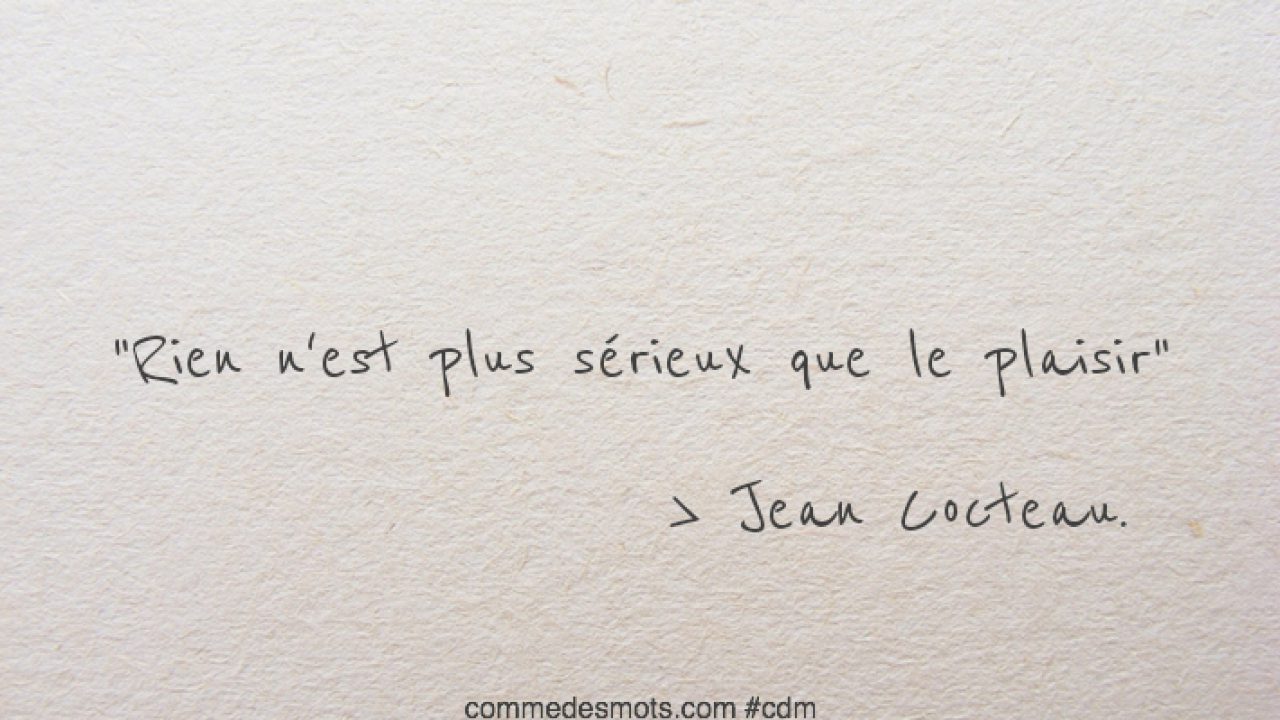 "Rien n'est plus sérieux que le plaisir"
> Jean Cocteau.
commedesmots.com #cdm